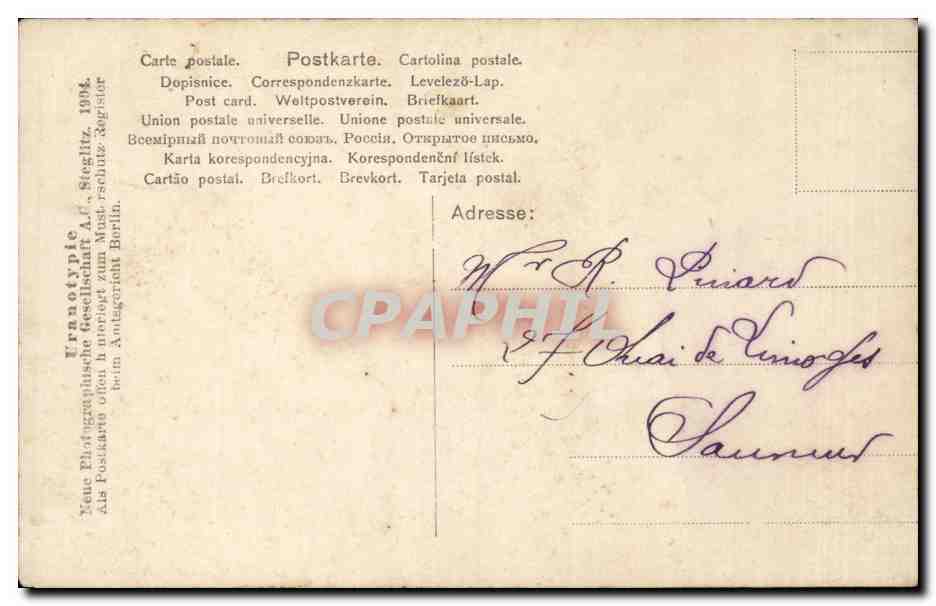 Carte postale. Postkarte. Cartolina postale.
Dopisnice. Correspondenzkarte. Levelező-Lap.
Post card. Weltpostverein. Briefkaart.
Union postale universelle. Unione postale universale.
Всемірный почтовый союзъ. Россія. Открытое письмо.
Karta korespondencyjna. Korespondenční lístek.
Cartão postal. Brefkort. Brevkort. Tarjeta postal.
Uranotypie
Neue Photographische Gesellschaft A.G., Steglitz, 1904.
Als Postkarte offen hinterlegt zum Musterschutz-Register
beim Amtsgericht Berlin.
Adresse:
Mr R. Pinard
27 Quai de Limoges
Saumur
CPAPHIL